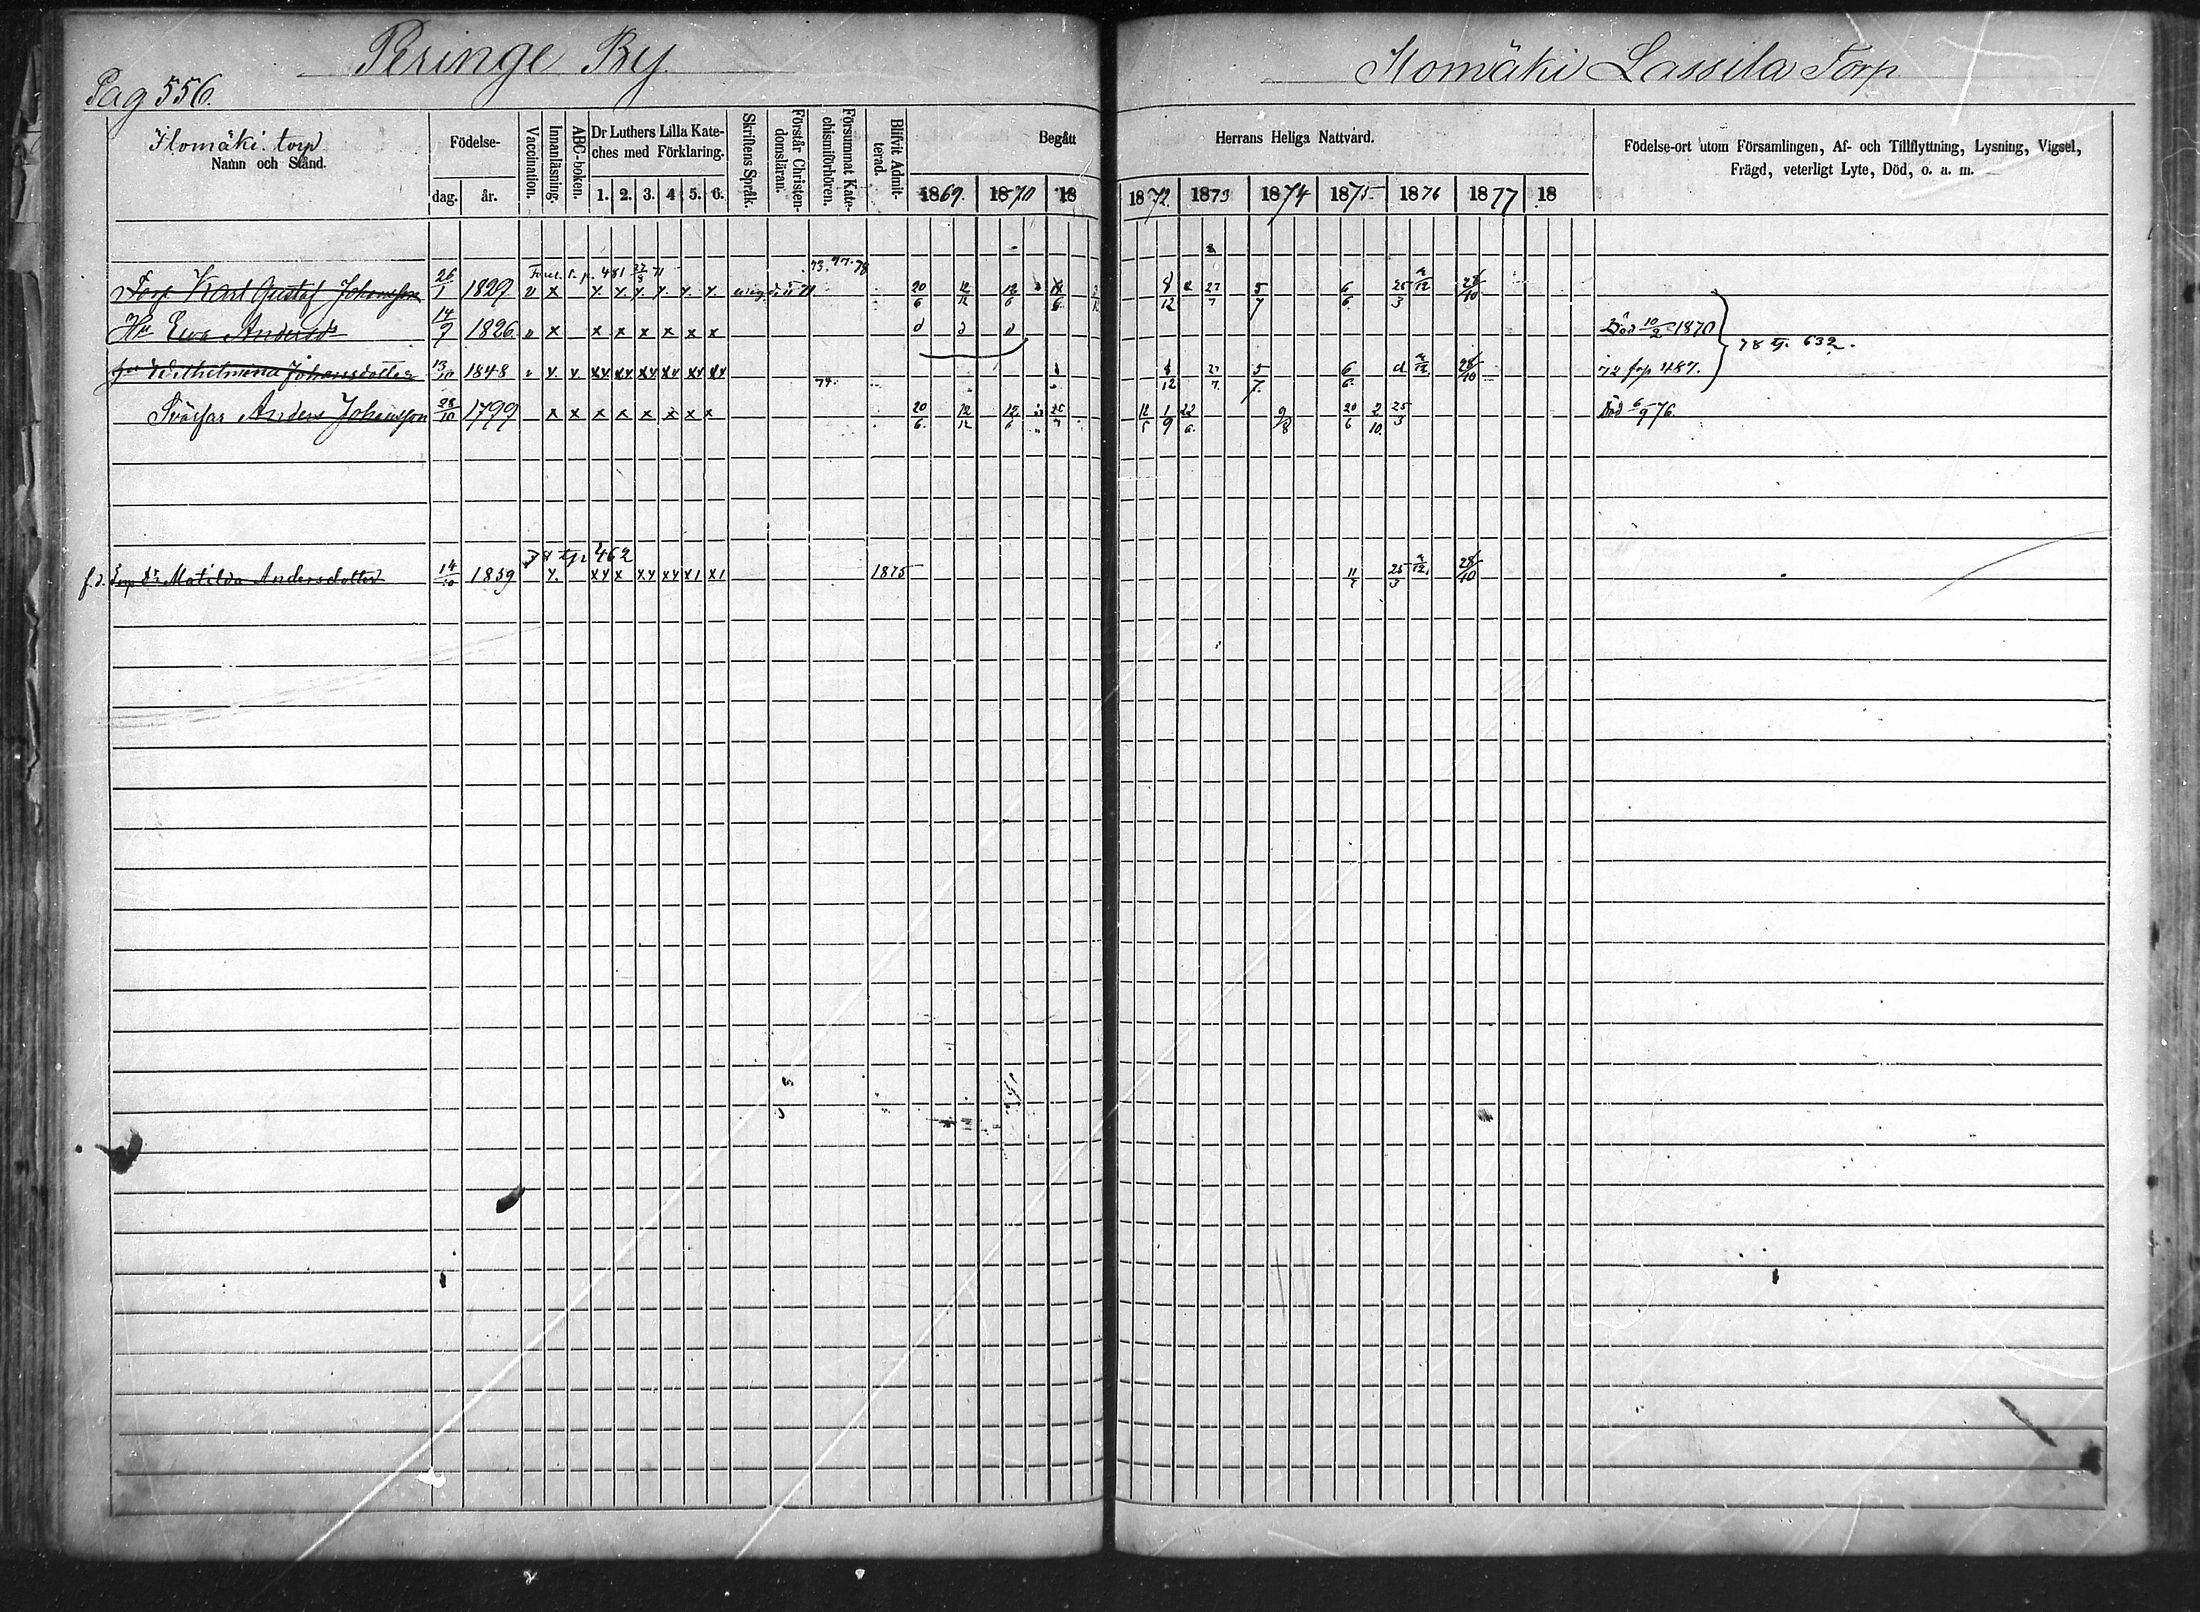 Peringe By.
Ilomäki Lassila Torp
Pag 556.
Ilomäki torp
Namn och Stånd.
Födelse-
dag. år.
Vaccination.
Innanläsning.
ABC-boken.
Dr Luthers Lilla Kate-
ches med Förklaring.
1. 2. 3. 4 5. 6.
Skriftens Språk.
Förstår Christen-
domsläran.
Försummat Kate-
chismiförhören.
Blifvit Admit-
terad.
Begått
Herrans Heliga Nattvård.
1869. 1870 18 1872. 1873 1874 1875 1876 1877 18
Födelse-ort utom Församlingen, Af- och Tillflyttning, Lysning, Vigsel,
Frägd, veterligt Lyte, Död, o. a. m.
73. 77. 78
Torp Karl Gustaf Johansson 26/1 1829 v x x. x. x. x. x. x. 20/6 12/12 12/6 8/12 27/7 5/7 6/6 25/3 28/10
Hu Ewa Andersdr 14/9 1826 v x x x x x x x d d d Död 10/2 1870
78 tg. 632.
Wilhelmina Johansdotter 13/10 1848 x x xx xx xx xx xx xx 74. 8/12 27/7. 5/7. 6/6. d 28/10 72 frp 487.
Svärfar Anders Johansson 28/10 1799 x x x x x x x x 20/6. 12/12 12/6 12/5 1/9 22/6. 9/8 20/6 2/10. 25/3 Död 6/9 76.
78 tg. 462
f.d. Torp dr Matilda Andersdotter 14/10 1859 x. xx x xx xx x1 x1 1875 11/7 25/3 28/10